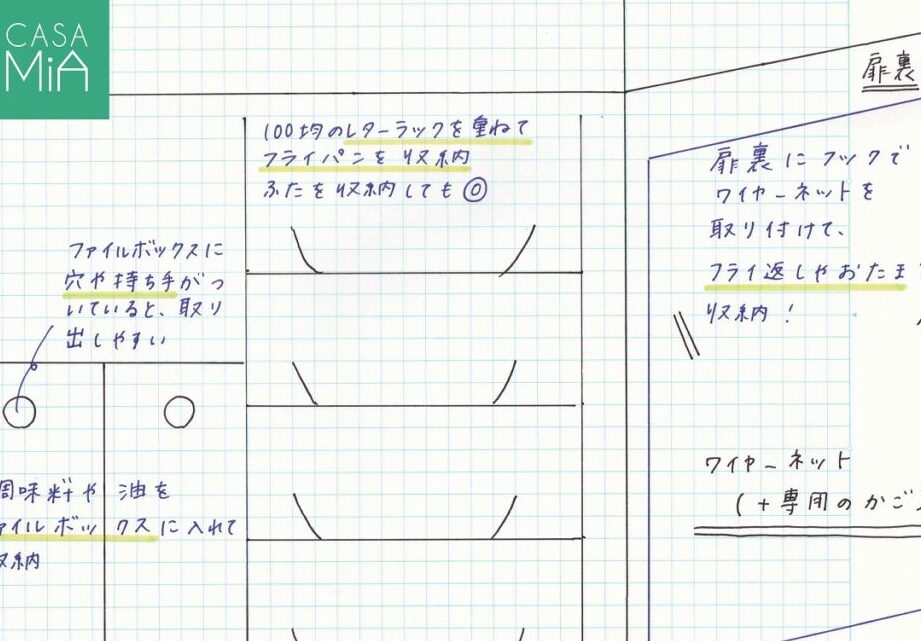 CASA
MiA
扉裏
100均のレターラックを重ねて
フライパンを収納
ふたを収納しても◎
扉裏にフックで
ワイヤーネットを
取り付けて、
フライ返しやおたま
収納!
ファイルボックスに
穴や持ち手がつ
いていると、取り
出しやすい
ワイヤーネット
(+専用のかご
調味料や油を
ァイルボックスに入れて
収納